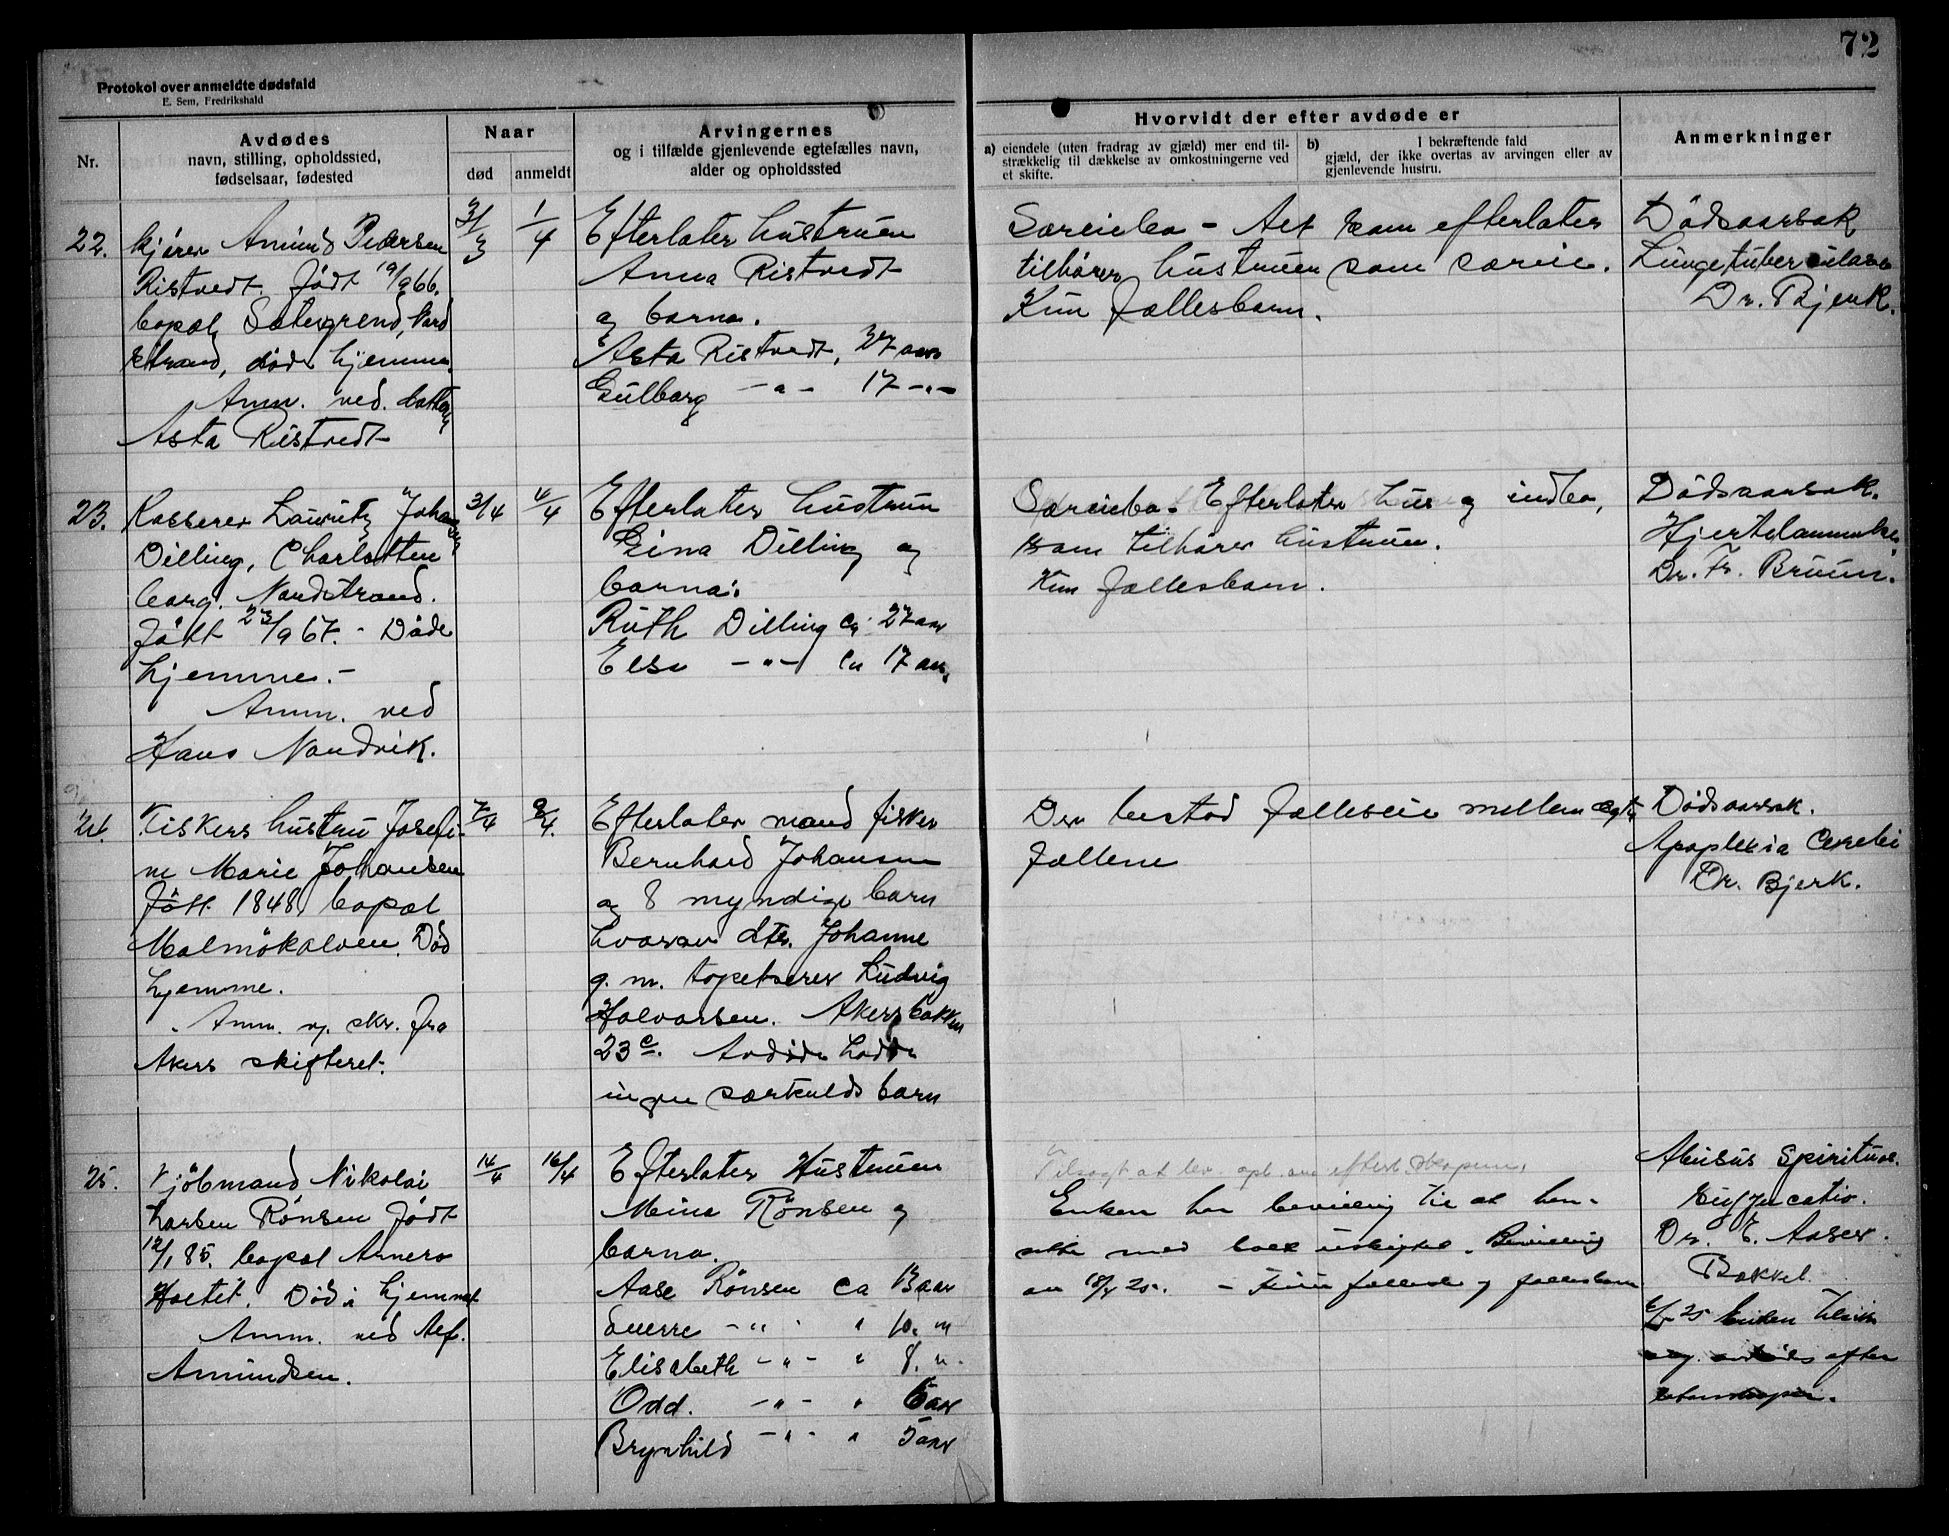 72
Protokol over anmeldte dødsfald
E. Sem, Fredrikshald
Nr.
Avdødes
navn, stilling, opholdssted,
fødselsaar, fødested
Naar
død
anmeldt
Arvingernes
og i tilfælde gjenlevende egtefælles navn,
alder og opholdssted
Hvorvidt der efter avdøde er
a) eiendele (uten fradrag av gjæld) mer end til-
strækkelig til dækkelse av omkostningerne ved
et skifte.
b) I bekræftende fald
gjæld, der ikke overtas av arvingen eller av
gjenlevende hustru.
Anmerkninger
22.
Kjører Amund Pedersen
Ristvedt. Født 19/9 66.
bopæl Sætergrend, Nord
strand, døde hjemme.
Anm. ved datter
Asta Ristvedt
31/3
1/4
Efterlater hustruen
Anna Ristvedt
og barna.
Asta Ristvedt, 27 aar
Gulborg -"- 17 -"-
Særeiebo - Alt som efterlates
tilhører hustruen som særeie.
Kun fællesbarn.
Dødsaarsak
Lungetuberculose
Dr. Bjerk.
23.
Kasserer Lauritz Johan
Dilling, Charlotten
borg. Nordstrand.
født 23/9 67. - Døde
hjemme. -
Anm. ved
Hans Nordvik.
3/4
4/4
Efterlater hustrun
Gina Dilling og
barna:
Ruth Dilling ca 27 aar
Else -"- ca 17 aar.
Særeiebo. Efterlater hus og indbo,
som tilhører hustruen.
Kun fællesbarn.
Dødsaarsak.
Hjertelammelse
Dr. Fr. Bruun.
24.
Fiskers hustru Josefi-
ne Marie Johansen
født 1848 bopæl
Malmökalven. Död
hjemme.
Anm. v. skr. fra
Akers skifteret.
7/4
8/4.
Efterlater mand fisker
Bernhard Johansen
og 8 myndige barn
hvorav dtr. Johanne
g. m. tapetserer Ludvig
Halvorsen. Akersbakken
23 c. Avdøde hadde
ingen særkulds barn
Der bestod fælleseie mellem egte
fællene
Dødsaarsak.
Apoplexia Cerebri
Dr. Bjerk.
25.
Kjöbmand Nikolai
Larsen Rönsen Født
12/1 85. bopæl
Holtet. Död i hjemmet
Anm. ved Alf.
Amundsen.
14/4
16/4
Efterlater Hustruen
Mina Rönsen og
barna.
Aase Rönsen ca 13 aar
Sverre -"- " 10. "
Elisabeth -"- " 8. "
Odd. -"- " 6 aar
Brynhild -"- " 5 aar
Tilsagt at lev. opl. om efterl.
Enken har bevilling til at hen-
sitte med boet uskiftet. Bevilling
av 18/4 25. - Kun fælleseie og fællesbarn
Abusus Spirituos.
Suffucatio.
Dr. E. Aaser.
Bækkel.
25 Enken
efter